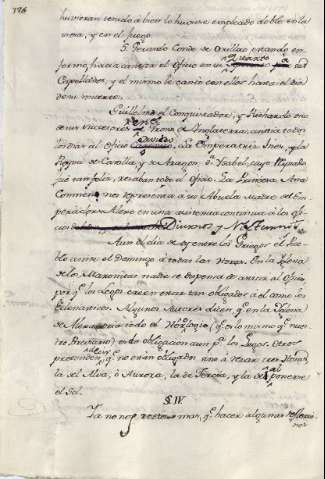 126
huvieran tenido a bien lo huviese empleado doble en la
mesa, y en el juego.
5. Gerardo Conde de Orillac estando en-
fermo hizo cantar el Oficio en su Quarto a sus
Capellanes, y el mismo le cantó con ellos hasta el dia
de su muerte.
Guillelmo el Conquistador, y Richardo
en el Trono de Inglaterra, asistia todos
los dias al Oficio Canonico, la Emperatriz Ines, y la
Reyna de Castilla, y de Aragon D.ª Ysabel, cuyo Reynado
fue tan feliz, rezaban todo el Oficio. La Princesa Ana
Comneno nos representa a su Abuela Madre del Em-
perador Alexo en una asistencia continua a los Ofi-
cios Diurnos y Nocturnos.
Aun el dia de oy entre los Griegos el Pue-
blo asiste el Domingo á todas las Horas. En la Iglesia
de los Maronitas nadie se dispensa de asistir al Oficio
por q.e los Legos creen estar tan obligados a el como los
Eclesiasticos. Algunos Autores dicen q.e en la Iglesia
de Alexandria todo el Horologio (q.e es lo mismo q.e nues-
tro Breviario) es de obligacion aun p.a los Legos. Otros
pretenden, q.e no están obligados sino á rezar tres Horas,
la del Alva, ó Aurora, la de Tercia, y la de al ponerse
el Sol.
§ IV
Ya no nos resta mas, q.e hacer algunas reflexio-
nes